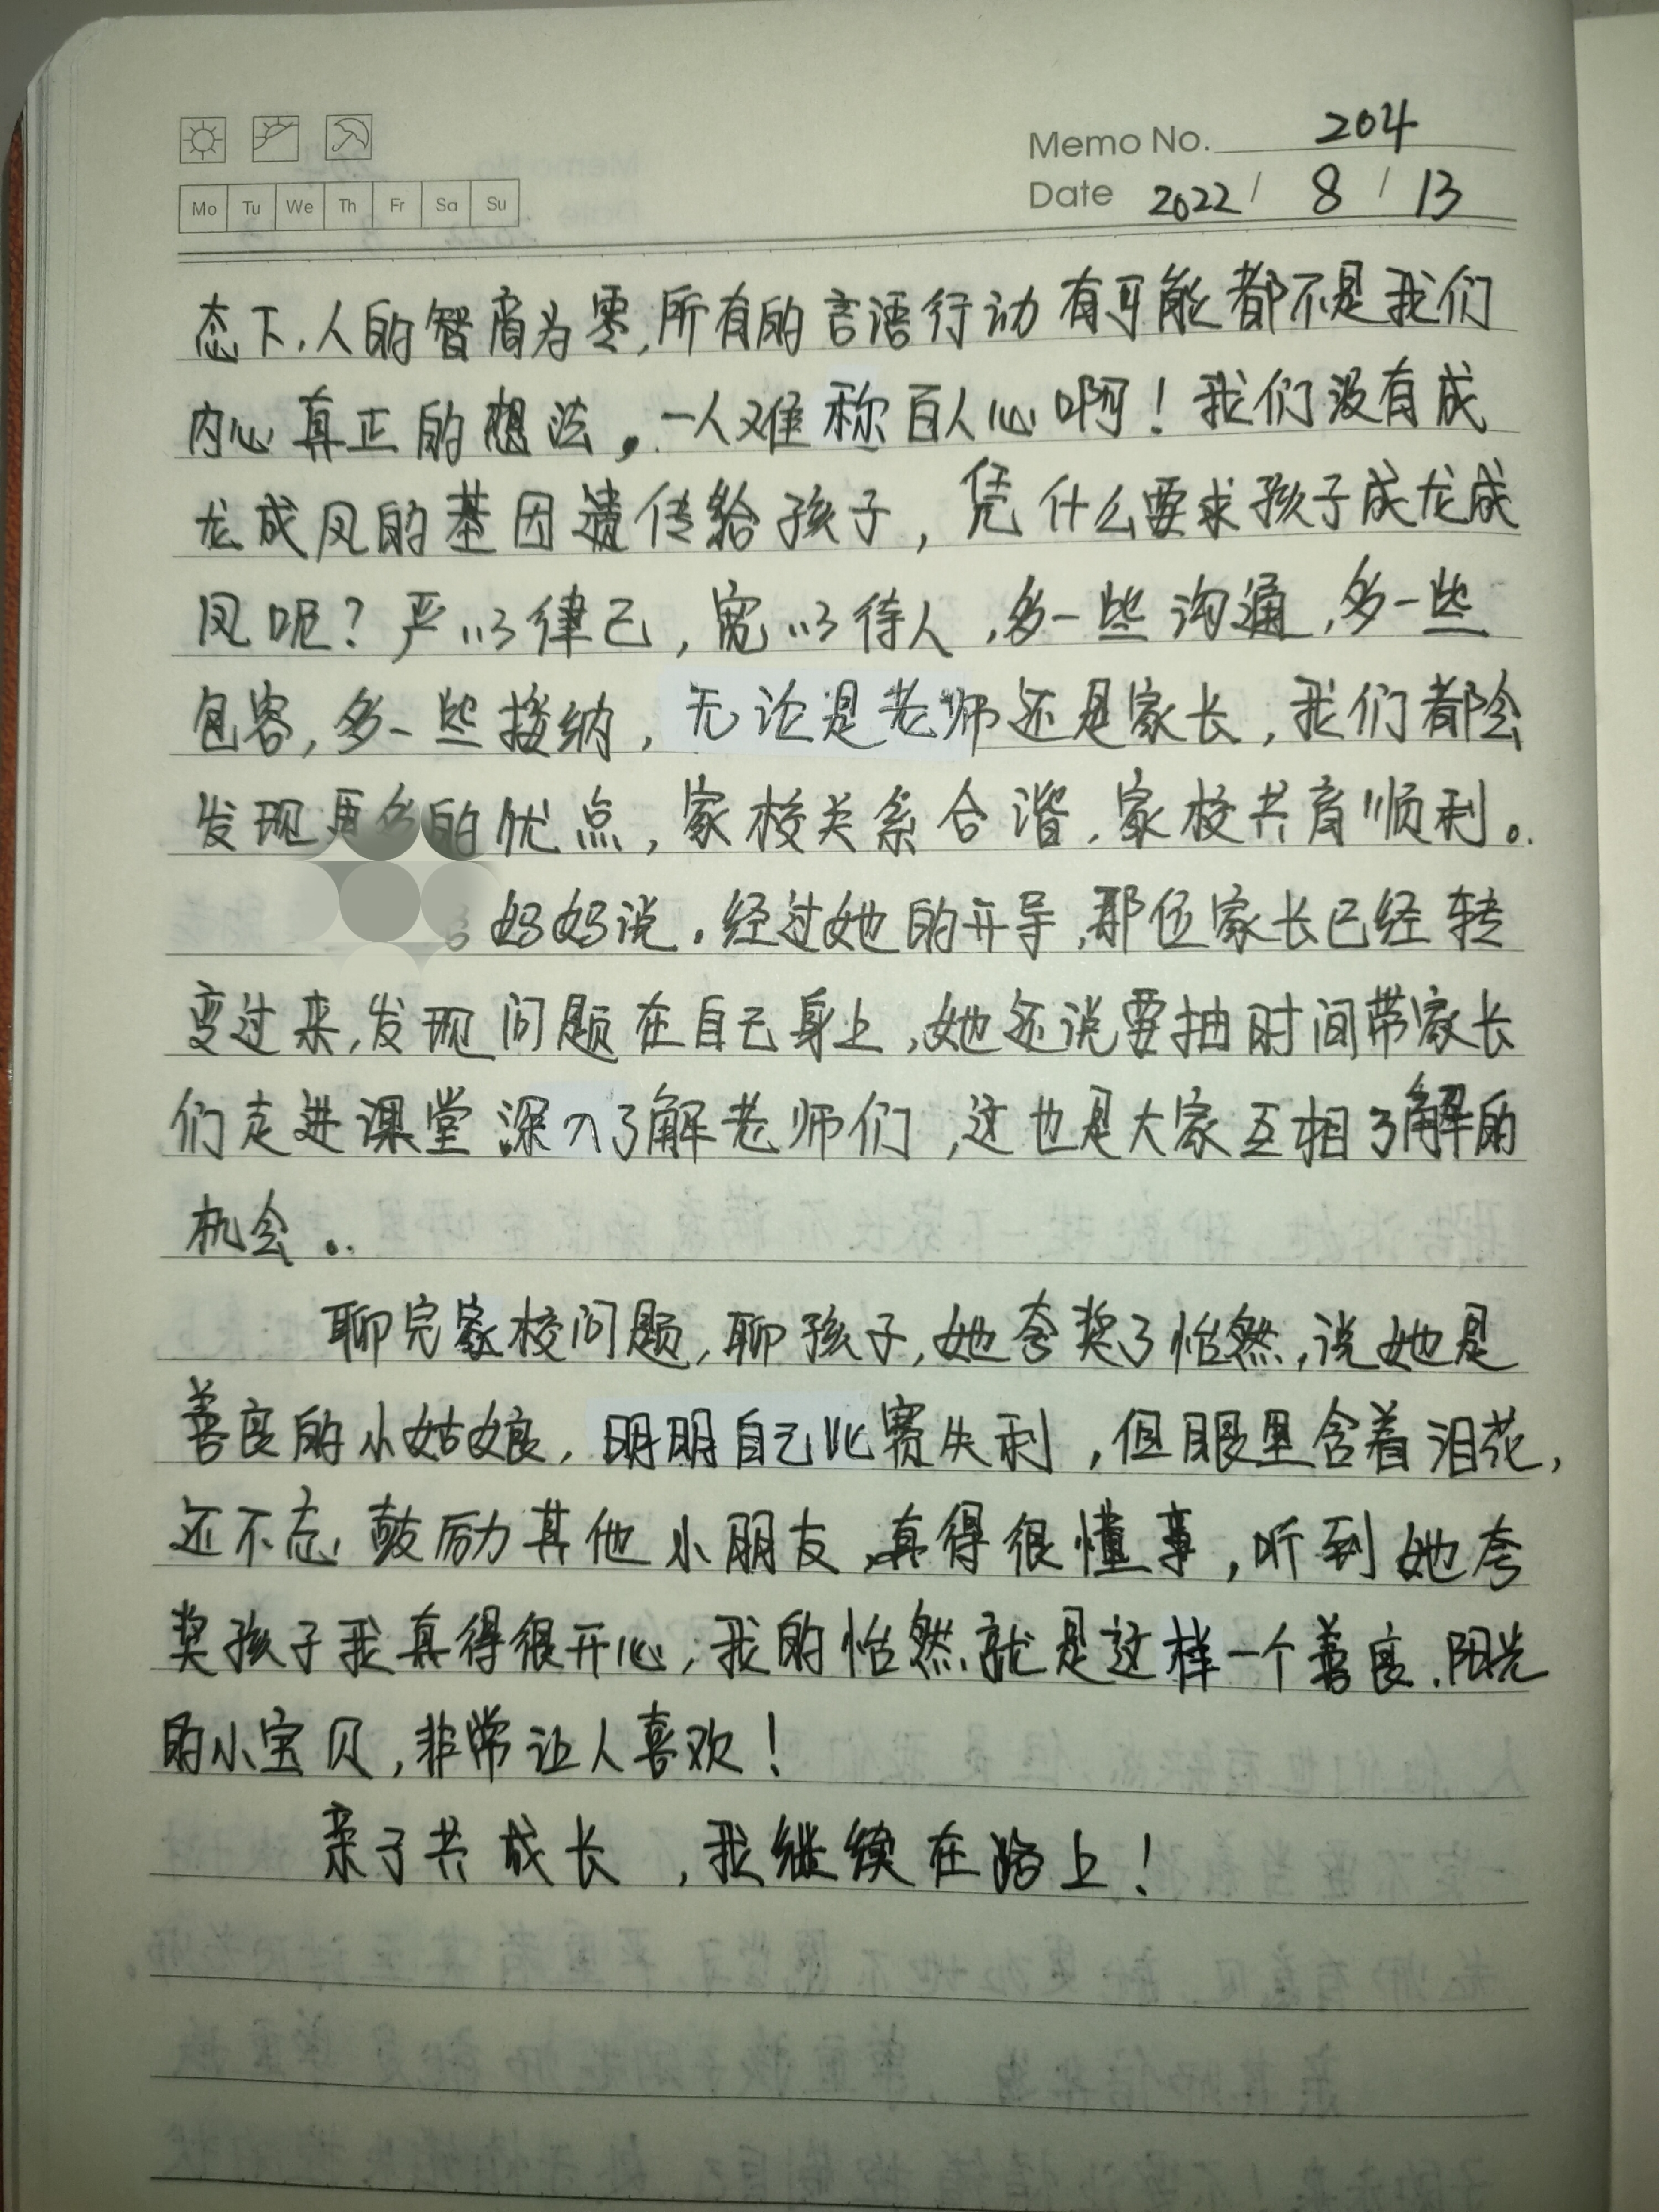 Memo No. 204
Mo Tu We Th Fr Sa Su
Date 2022 / 8 / 13
态下,人的智商为零,所有的言语行动有可能都不是我们
内心真正的想法。一人难称百人心啊!我们没有成
龙成凤的基因遗传给孩子,凭什么要求孩子成龙成
凤呢?严以律己,宽以待人,多一些沟通,多一些
包容,多一些接纳,无论是老师还是家长,我们都会
发现更多的优点,家校关系合谐,家校共育顺利。
妈妈说,经过她的开导,那位家长已经转
变过来,发现问题在自己身上,她还说要抽时间带家长
们走进课堂,深入了解老师们,这也是大家互相了解的
机会。
聊完家校问题,聊孩子,她夸奖了怡然,说她是
善良的小姑娘,明明自己比赛失利,但眼里含着泪花,
还不忘鼓励其他小朋友,真得很懂事,听到她夸
奖孩子我真得很开心,我的怡然就是这样一个善良、阳光
的小宝贝,非常让人喜欢!
亲子共成长,我继续在路上!